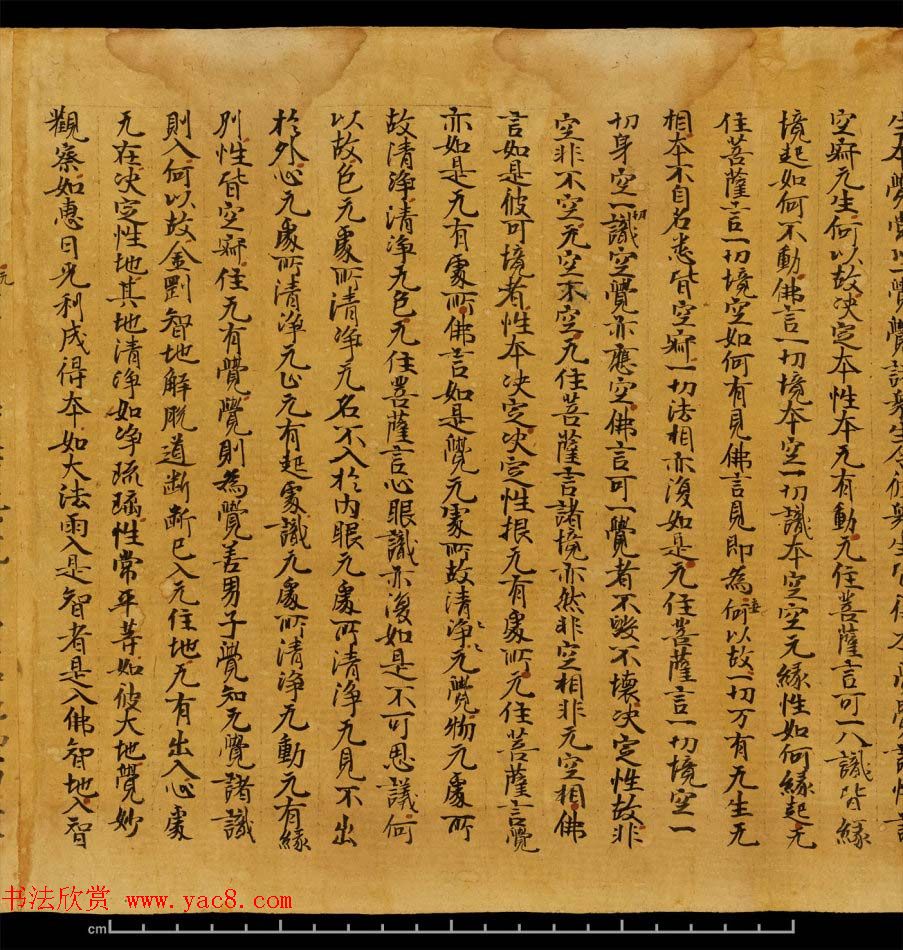 空寂无生何以故决定本性本无有動无住菩薩言可一八識皆緣
境起如何不動佛言一切境本空一切識本空空无緣性如何緣起无
住菩薩言一切境空如何有見佛言見即為妄何以故一切万有无生无
相本不自名悉皆空寂一切法相亦復如是无住菩薩言一切境空一
切身空一切識空覺亦應空佛言可一覺者不毀不壞决定性故非
空非不空无空不空无住菩薩言諸境亦然非空相非无空相佛
言如是彼可境者性本决定决定性根无有處所无住菩薩言覺
亦如是无有處所佛言如是覺无處所故清淨〻〻无覺物无處所
故清淨清淨无色无住菩薩言心眼識亦復如是不可思議何
以故色无處所清淨无名不入於内眼无處所清淨无見不出
於外心无處所清淨无止无有起處識无處所清淨无動无有緣
別性皆空寂住无有覺覺則為覺善男子覺知无覺諸識
則入何以故金剛智地解脫道斷斷已入无住地无有出入心處
无在决定性地其地清淨如淨琉璃性常平等如彼大地覺妙
觀察如惠日光利成得本如大法雨入是智者是入佛智地入智
书法欣赏 www.yac8.com
cm